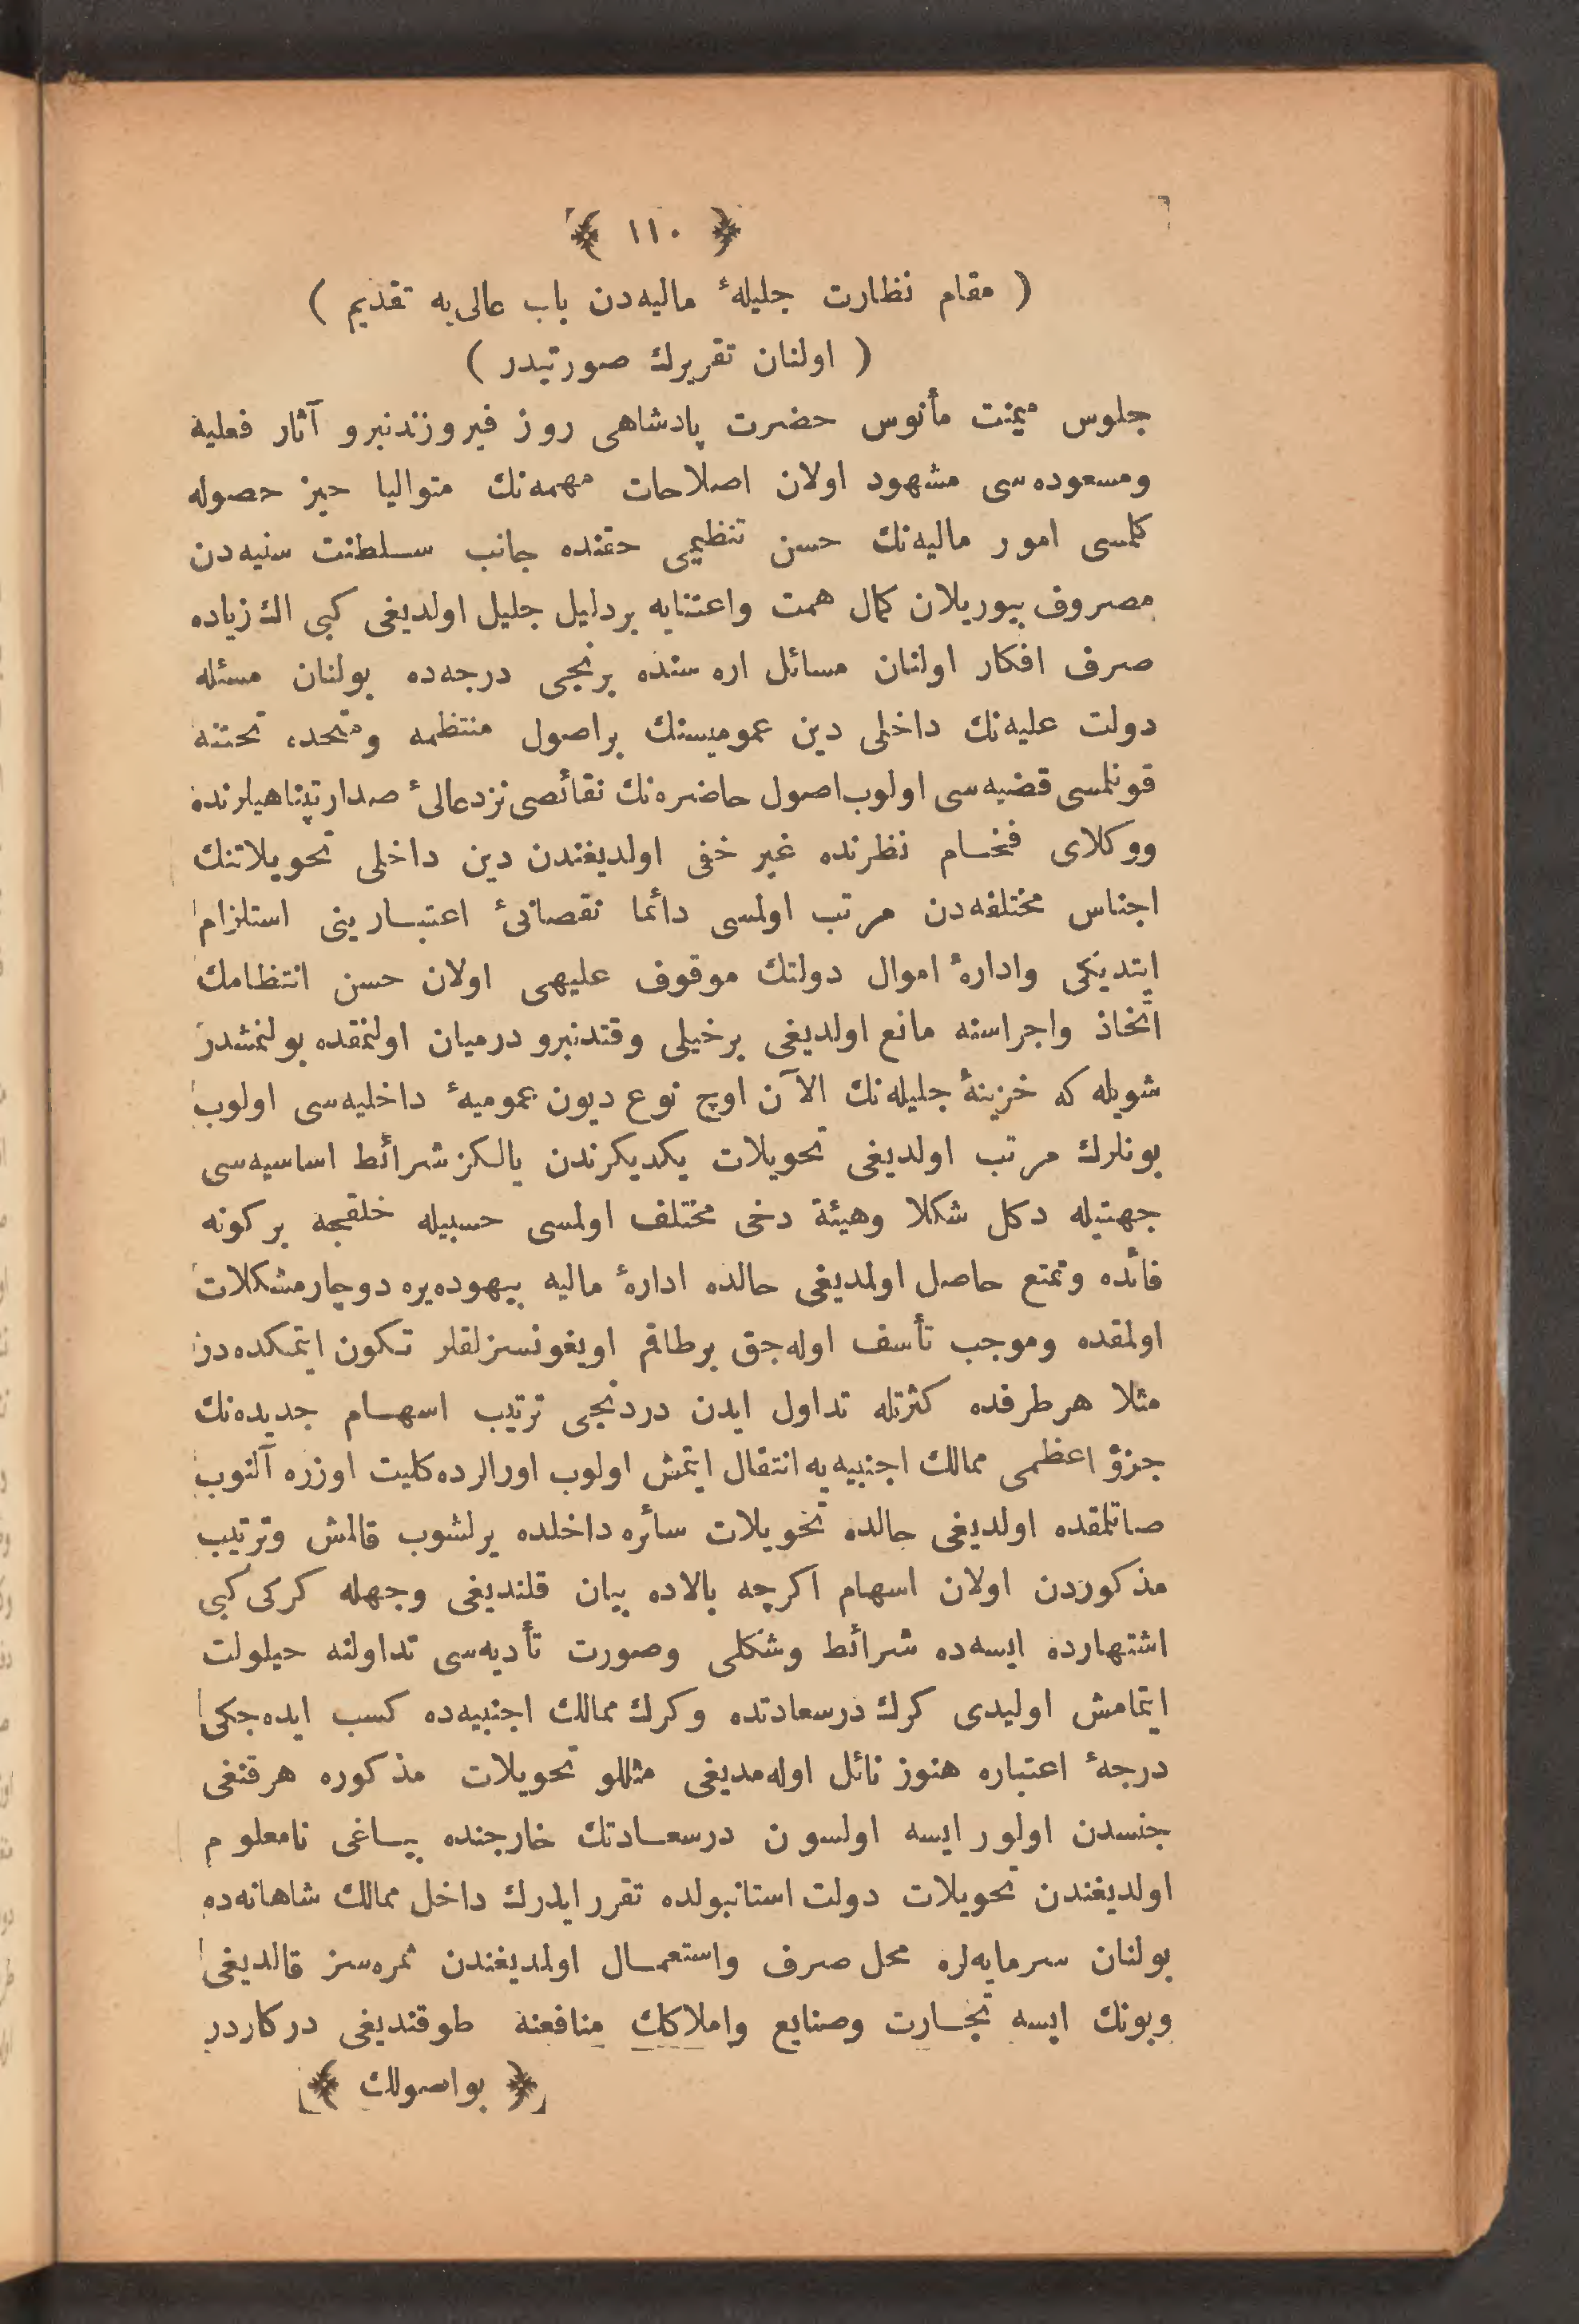 ﴿ ١١٠ ﴾
( مقام نظارت جليلهٔ ماليه‌دن باب عالى‌يه تقديم )
( اولنان تقريرك صورتيدر )
جلوس ميمنت مأنوس حضرت پادشاهى روز فيروزندنبرو آثار فعليه
ومسعوده‌سى مشهود اولان اصلاحات مهمه‌نك متواليا حيز حصوله
كلمسى امور ماليه‌نك حسن تنظيمى حقنده جانب سلطنت سنيه‌دن
مصروف بيوريلان كمال همت واعتنايه بردليل جليل اولديغى كبى الك زياده
صرف افكار اولنان مسائل اره سنده برنجى درجه‌ده بولنان مسئله
دولت عليه‌نك داخلى دين عموميسنك براصول منتظمه ومتحده تحتنه
قونلمسى قضيه‌سى اولوب اصول حاضره‌نك نقائصى نزد عالئ صدارتپناهيلرنده
ووكلاى فخام نظرنده غير خفى اولديغندن دين داخلى تحويلاتنك
اجناس مختلفه‌دن مرتب اولمسى دائما نقصانئ اعتبارينى استلزام
ايتديكى وادارهٔ اموال دولتك موقوف عليهى اولان حسن انتظامك
اتخاذ واجراسنه مانع اولديغى برخيلى وقتدنبرو درميان اولنمقده بولنمشدر
شويله كه خزينهٔ جليله‌نك الآن اوچ نوع ديون عموميهٔ داخليه‌سى اولوب
بونلرك مرتب اولديغى تحويلات يكديكرندن يالكز شرائط اساسيه‌سى
جهتيله دكل شكلا وهيئة دخى مختلف اولمسى حسبيله خلقجه بركونه
فائده وتمتع حاصل اولمديغى حالده ادارهٔ ماليه بيهوده‌يره دوچار مشكلات
اولمقده وموجب تأسف اوله‌جق برطاقم اويغونسزلقلر تكون ايتمكده‌در
مثلا هر طرفده كثرتله تداول ايدن دردنجى ترتيب اسهام جديده‌نك
جزؤ اعظمى ممالك اجنبيه‌يه انتقال ايتمش اولوب اورالرده كليت اوزره آلنوب
صاتلمقده اولديغى حالده تحويلات سائره داخلده يرلشوب قالمش وترتيب
مذكوردن اولان اسهام اكرچه بالاده بيان قلنديغى وجهله كركى كبى
اشتهارده ايسه‌ده شرائط وشكلى وصورت تأديه‌سى تداولنه حيلولت
ايتمامش اوليدى كرك درسعادتده وكرك ممالك اجنبيه‌ده كسب ايده‌جكى
درجهٔ اعتباره هنوز نائل اوله‌مديغى مثللو تحويلات مذكوره هرقنغى
جنسدن اولور ايسه اولسون درسعادتك خارجنده بياغى نامعلوم
اولديغندن تحويلات دولت استانبولده تقرر ايدرك داخل ممالك شاهانه‌ده
بولنان سرمايه‌لره محل صرف واستعمال اولمديغندن ثمره‌سز قالديغى
وبونك ايسه تجارت وصنايع واملاكك منافعنه طوقنديغى دركاردر
﴿ بواصولك ﴾